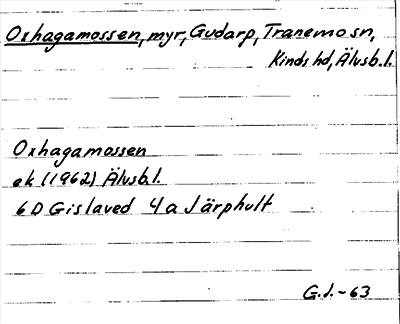 Oxhagamossen, myr, Gudarp, Tranemo sn,
Kinds hd, Älvsb.l.
Oxhagamossen
ek (1962) Älvsb.l.
6D Gislaved 4a Järphult
G.J.-63